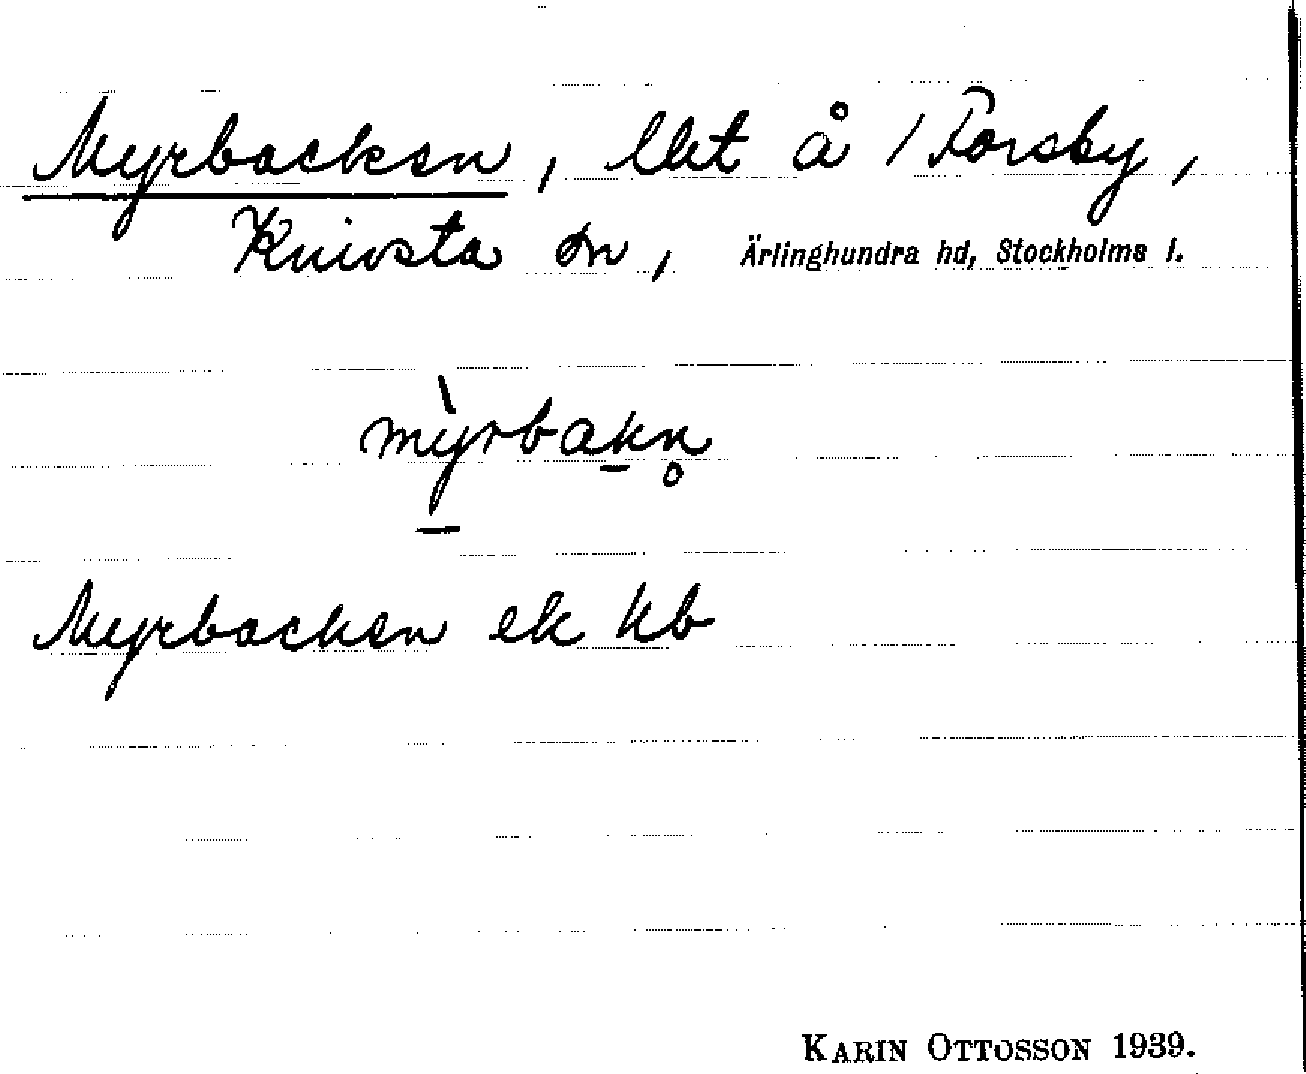 Myrbacken, lht å /Forsby,
Knivsta sn, Ärlinghundra hd, Stockholms l.
mỳ̱rbaḵn̥
Myrbacken ek kb
KARIN OTTOSSON 1939.